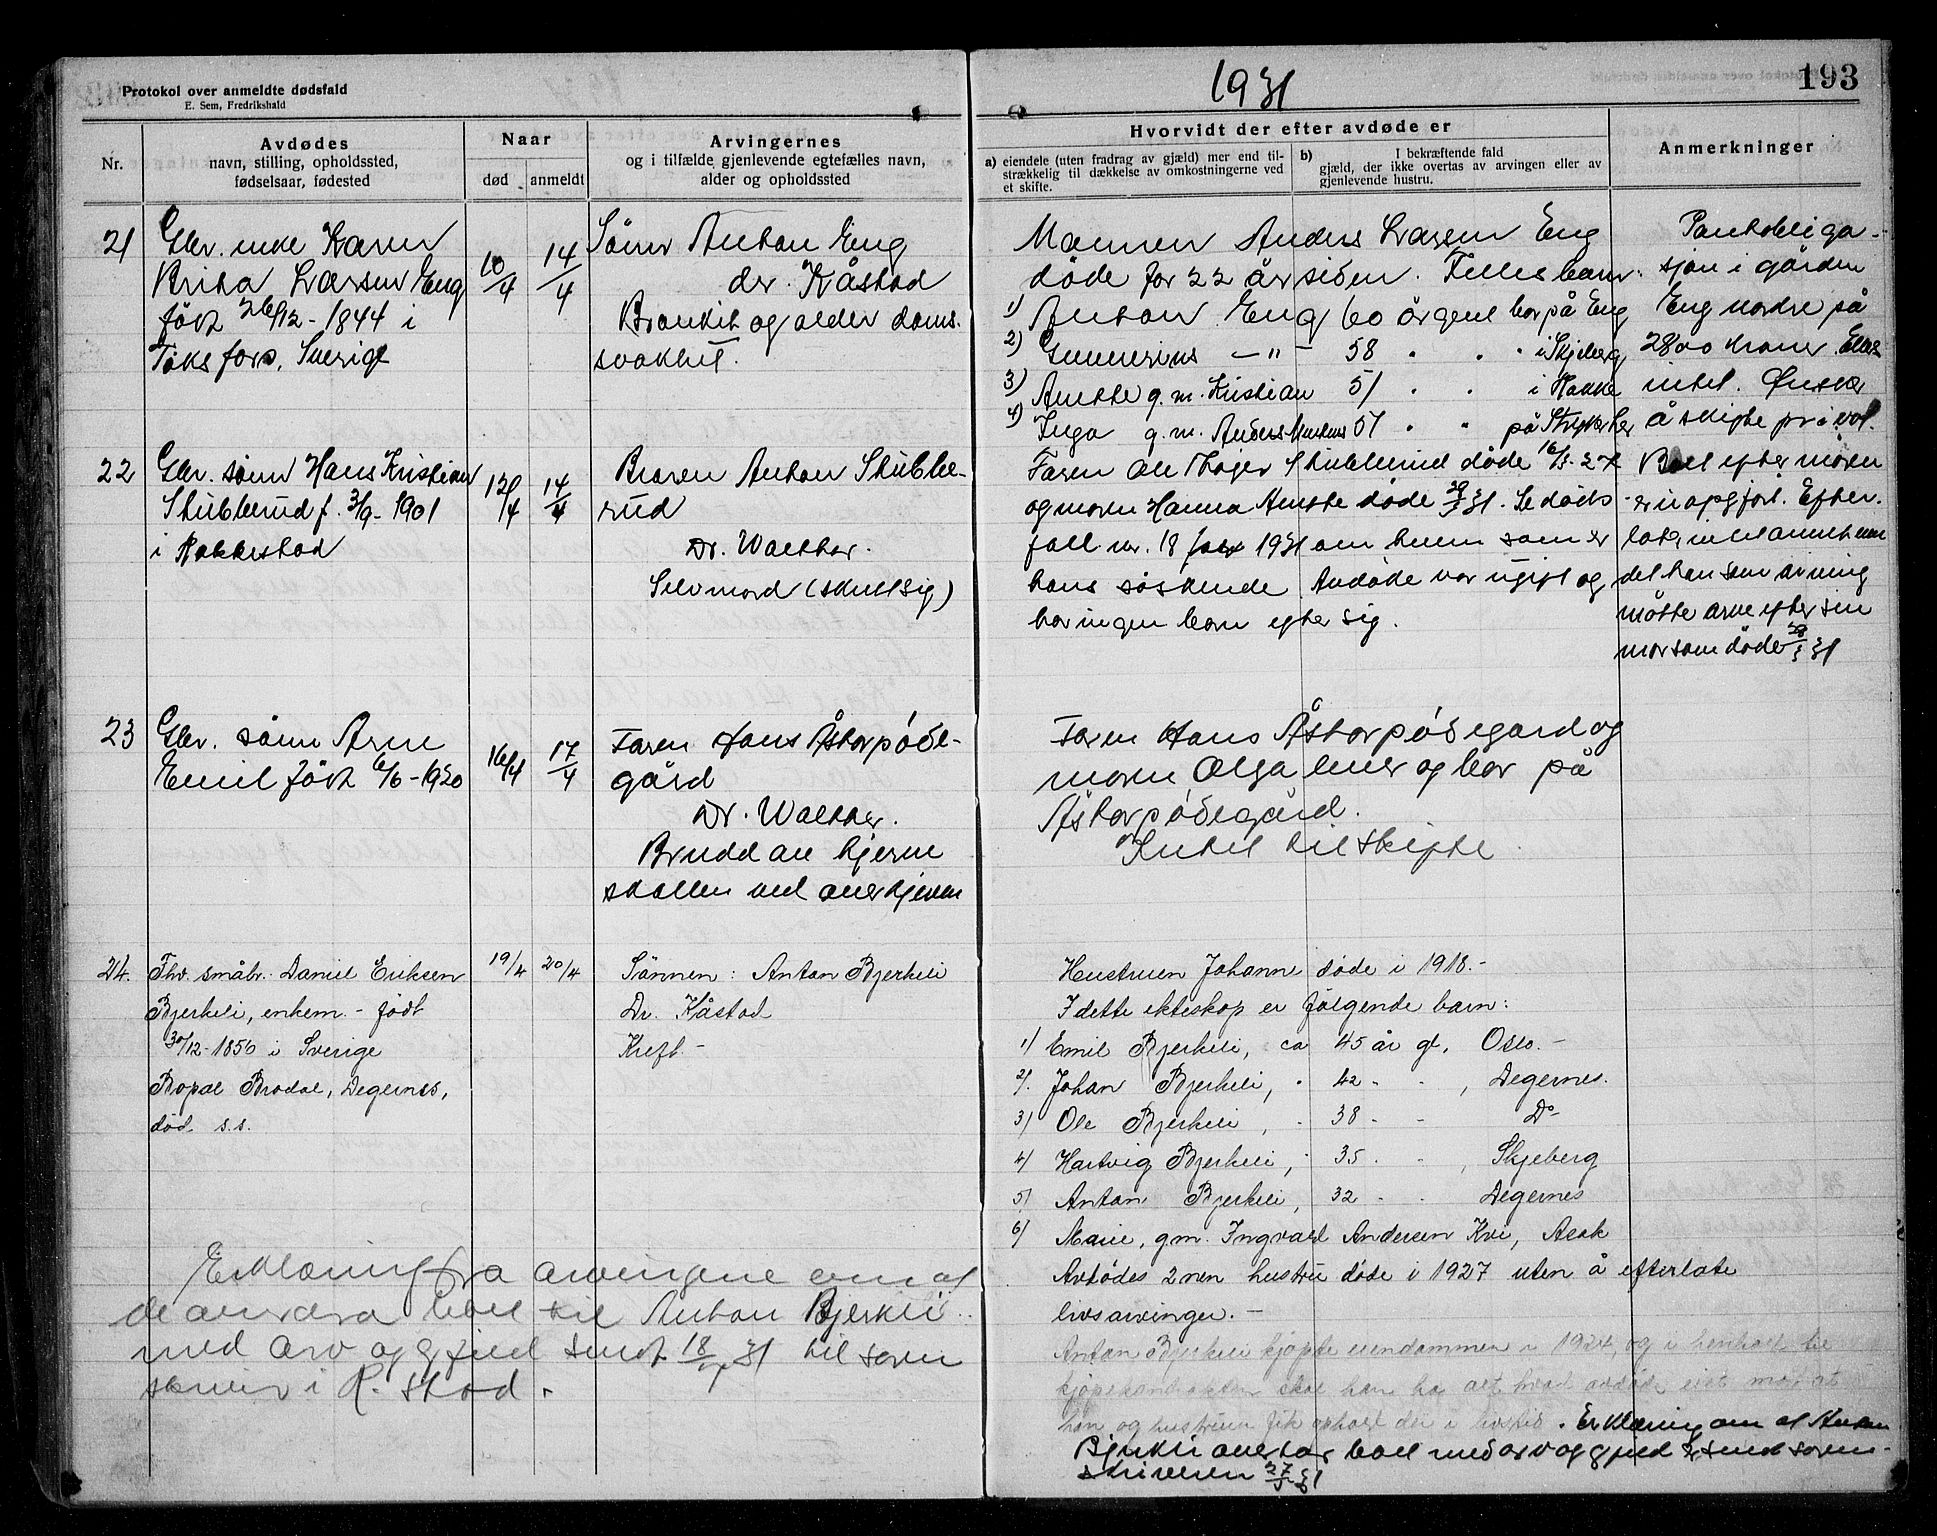 Protokol over anmeldte dødsfald
E. Sem, Fredrikshald
1931
193
Nr.
Avdødes
navn, stilling, opholdssted,
fødselsaar, fødested
Naar
død
anmeldt
Arvingernes
og i tilfælde gjenlevende egtefælles navn,
alder og opholdssted
Hvorvidt der efter avdøde er
a) eiendele (uten fradrag av gjæld) mer end til-
strækkelig til dækkelse av omkostningerne ved
et skifte.
b) I bekræftende fald
gjæld, der ikke overtas av arvingen eller av
gjenlevende hustru.
Anmerkninger
21
Gbr. enke Karen
Brita Larsen Eng
født 26/12-1844 i
Töksfors, Sverige
10/4
14/4
Sønn Anton Eng
dr. Kåstad
Bronkit og alderdoms-
svakhet.
Mannen Anders Larsen Eng
døde for 22 år siden. Felles barn:
1) Anton Eng 60 år gml bor på Eng
2) Gunnerius — " — 58 " " " i Skjeberg
3) Anette g.m. Kristian 51 " " i Hakke
4) Inga g.m. Anders 51 " " på
Pantobliga-
sjon i gården
Eng nordre på
2800 kroner. Ellers
intet. Ønsker
å skifte privat.
22
Gbr. sønn Hans Kristian
Stubberud f. 3/9-1901
i Rakkestad
12/4
14/4
Broren Anton Stubbe-
rud
Dr. Walther.
Selvmord (skutt sig)
Faren Ole Stubberud døde 16/3-27
og moren Hanna Anette døde 28/3 31. Se døds-
fall nr. 18 for 1931 om hvem som er
hans søskende. Avdøde var ugift og
har ingen barn efter sig.
Boet efter moren
er uopgjort. Efter-
later intet annet enn
det han som arving
måtte arve efter sin
mor som døde 28/3 31
23
Gbr. sønn Arne
Emil født 6/6-1920
16/4
17/4
Faren Hans Åstorpødе-
gård
Dr. Walther.
Brudd av hjerne
skallen ved overkjøren
Faren Hans Åstorpødegard og
moren Olga lever og bor på
Åstorpødegård.
Intet til skifte.
24.
Fhv. småbr. Daniel Eriksen
Bjerkeli, enkem. - født
30/12-1856 i Sverige
Bopæl Brodal, Degernes,
død s.s.
19/4
20/4
Sønnen: Anton Bjerkeli
Dr. Kåstad
Kreft -
Hustruen Johanne døde i 1918.-
I dette ekteskap er følgende barn:
1) Emil Bjerkeli, ca 45 år gl, Oslo.-
2) Johan Bjerkeli, " 42 " " , Degernes.
3) Ole Bjerkeli, " 38 - - Do
4) Hartvig Bjerkeli, " 35 - " , Skjeberg
5) Anton Bjerkeli, 32 - - Degernes
6) Marie, gm. Ingvald Andersen Kvi, Asak
Avdødes 2nen hustru døde i 1927 uten å efterlate
livsarvinger.-
Anton Bjerkeli kjøpte eiendommen i 1924, og i henhold til
kjøpekontrakten skal han ha alt hvad avdøde eiet mot at
han og hustruen fik ophold der i livstid. Erklæring om at Anton
Bjerkeli overtar boet med arv og gjeld er sendt soren-
skriveren 27/5 31
Erklæring fra arvingene om at
de overdra boet til Anton Bjerkeli
med arv og gjeld sendt 18/ 31 til soren
skriver i R.stad.